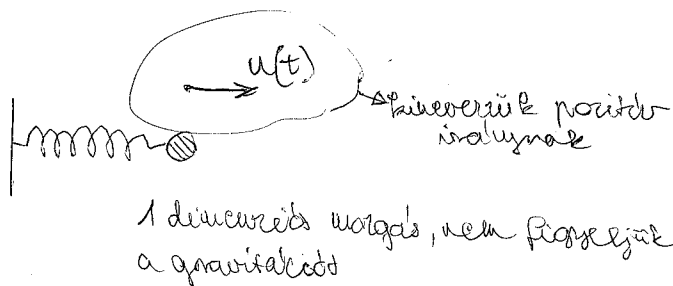 u(t)
kinevezzük pozitív
iránynak
1 dimenziós mozgás, nem figyeljük
a gravitációt